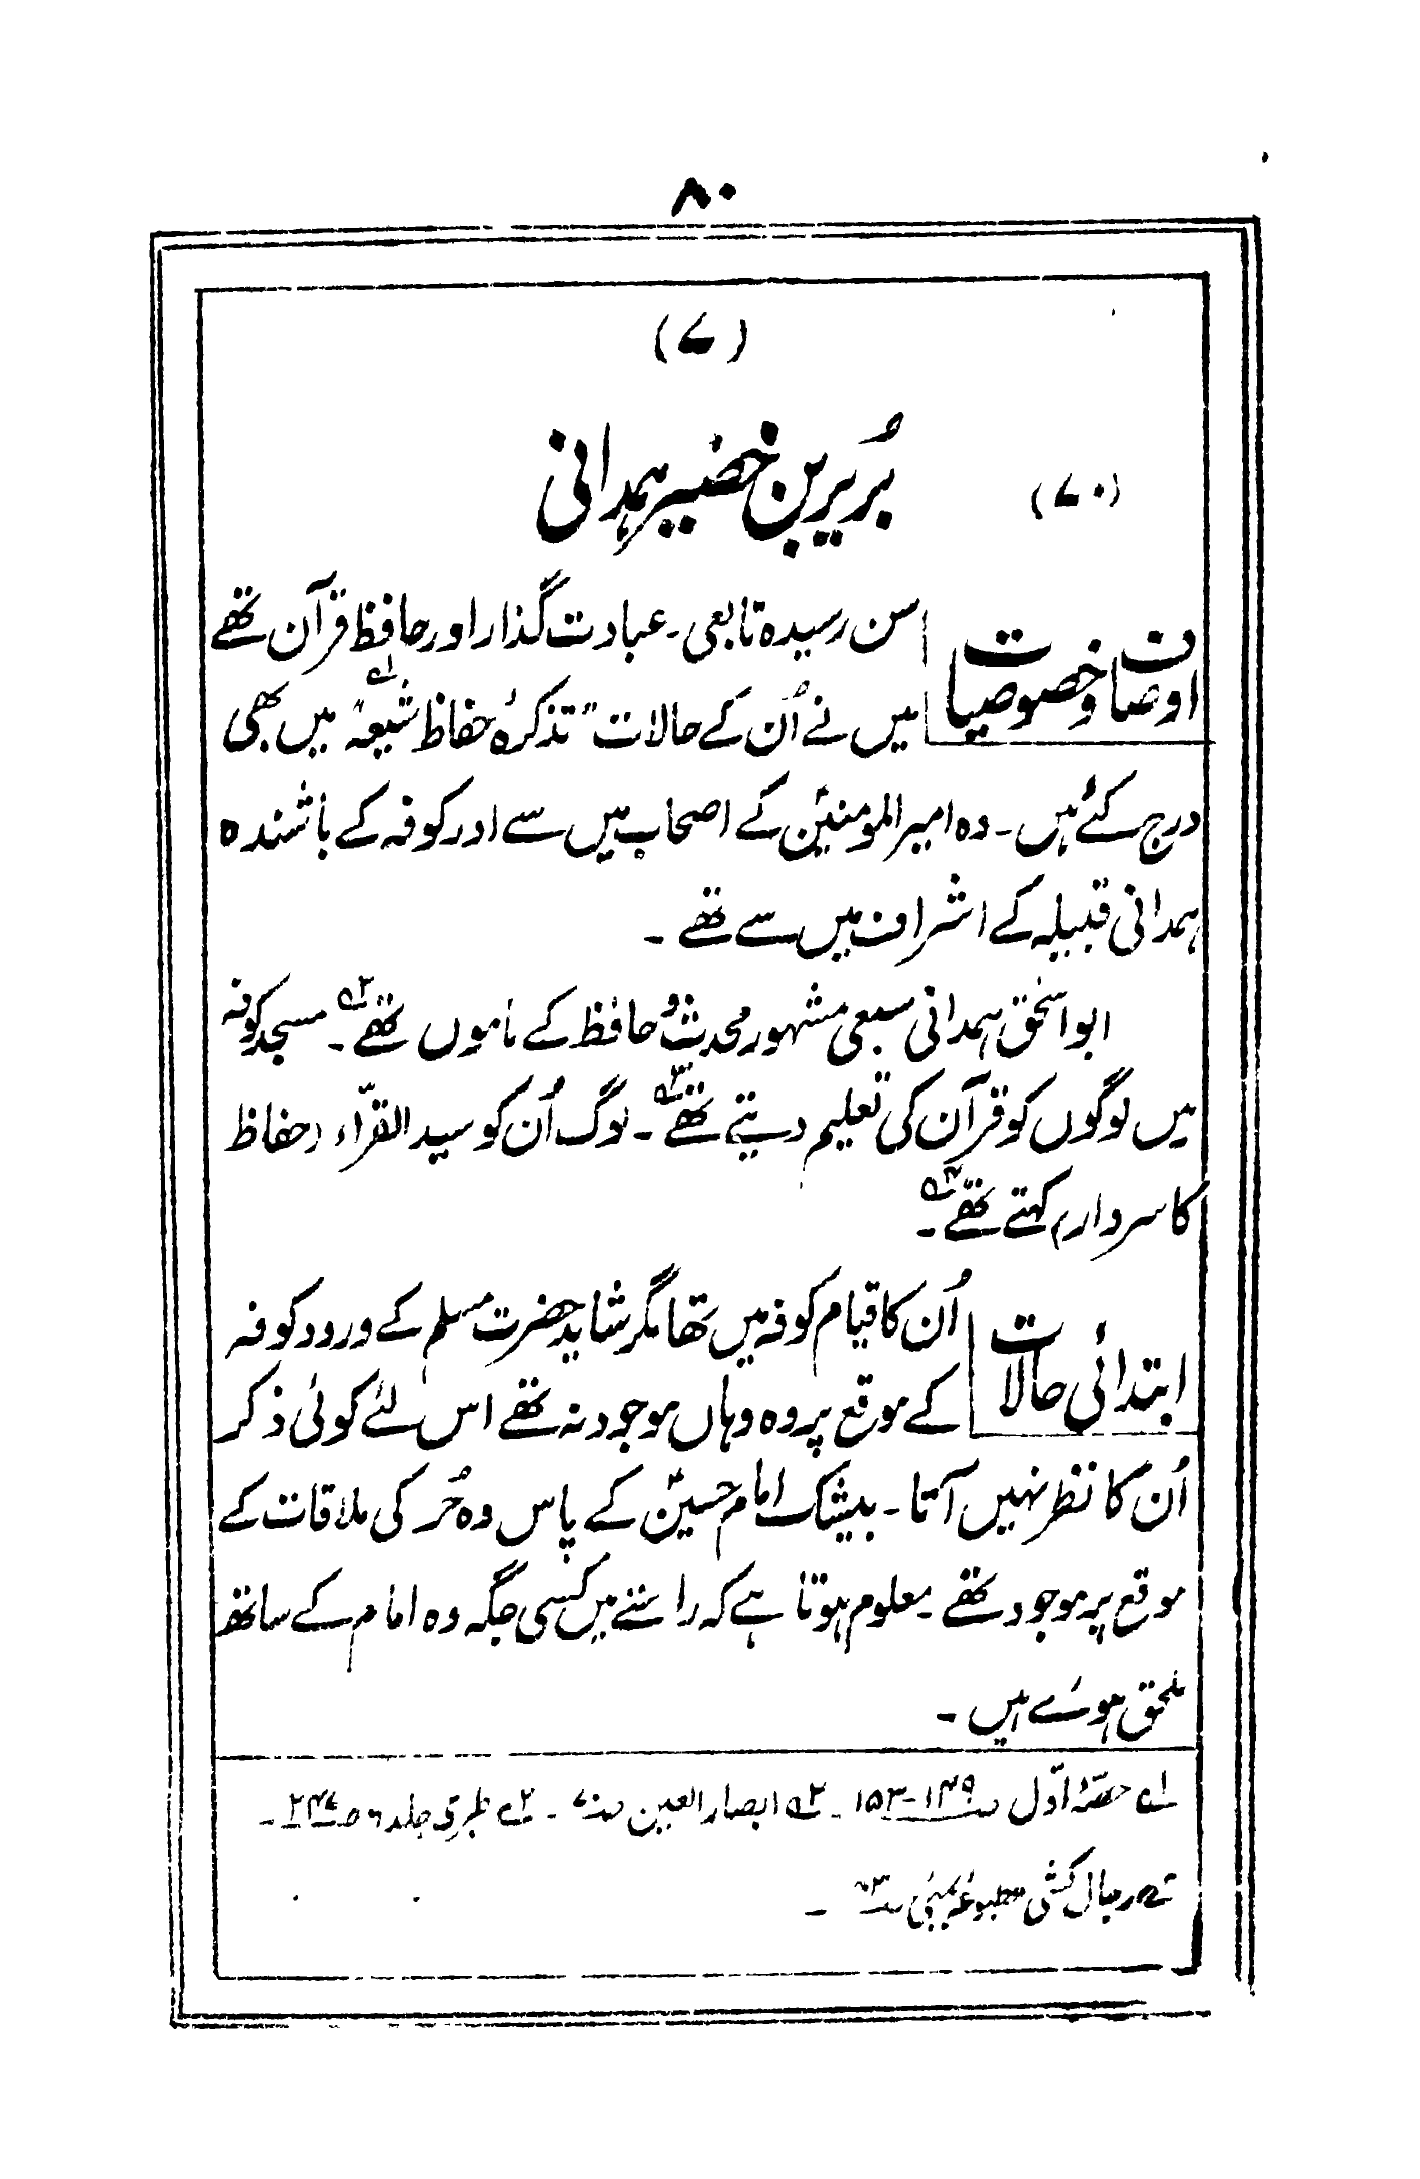 ۸۰
(۷)
(۷۰) بُریر بن خضیر ہمدانی
اوصاف و خصوصیات
سن رسیدہ تابعی۔ عبادت گذار اور حافظ قرآن تھے
میں نے اُن کے حالات "تذکرۂ حفاظ شیعہ" میں بھی
درج کئے ہیں۔ وہ امیرالمومنینؑ کے اصحاب میں سے اور کوفہ کے باشندہ
ہمدانی قبیلہ کے اشراف میں سے تھے۔
ابو اسحٰق ہمدانی سبعی مشہور محدث و حافظ کے ماموں تھے۲؎۔ مسجد کوفہ
میں لوگوں کو قرآن کی تعلیم دیتے تھے۳؎۔ لوگ اُن کو سید القرّاء (حفاظ
کا سردار) کہتے تھے۴؎۔
ابتدائی حالات
اُن کا قیام کوفہ میں تھا مگر شاید حضرت مسلم کے ورود کوفہ
کے موقع پر وہ وہاں موجود نہ تھے اس لئے کوئی ذکر
اُن کا نظر نہیں آتا۔ بیشک امام حسینؑ کے پاس وہ حُر کی ملاقات کے
موقع پر موجود تھے۔ معلوم ہوتا ہے کہ راستے میں کسی جگہ وہ امام کے ساتھ
ملحق ہوئے ہیں۔
۱؎ حصّۂ اوّل ص۱۴۹-۱۵۳۔ ۲؎ ابصار العین ص۷۰۔ ۳؎ طبری جلد ۶ ص۲۴۷۔
رجال کشی مطبوعہ بمبئی